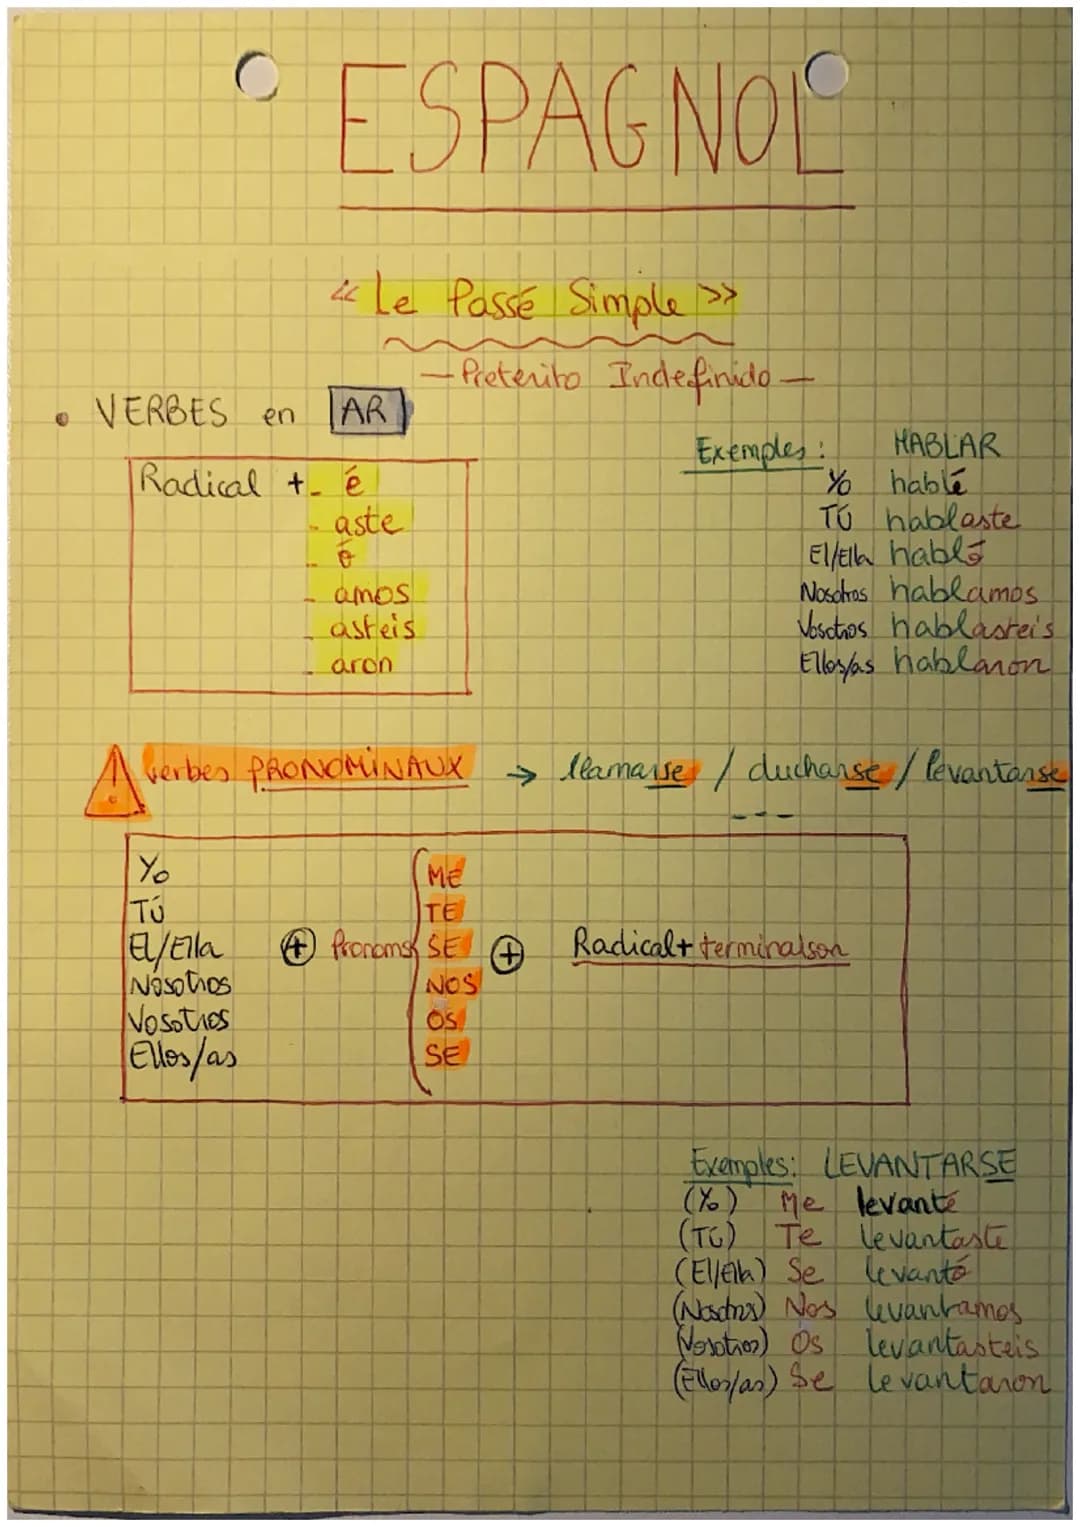 ESPAGNOL
« Le Passé Simple »
— Preterito Indefinido —
• VERBES en AR
Radical + - é
- aste
- ó
- amos
- asteis
- aron
Exemples : HABLAR
Yo hablé
Tú hablaste
El/Ella habló
Nosotros hablamos
Vosotros hablasteis
Ellos/as hablaron
! verbes PRONOMINAUX → llamarse / ducharse / levantarse
---
Yo
Tú
El/Ella
Nosotros
Vosotros
Ellos/as
+ Pronoms
ME
TE
SE
NOS
OS
SE
+ Radical + terminaison
Exemples: LEVANTARSE
(Yo) Me levanté
(Tú) Te levantaste
(El/Ella) Se levantó
(Nosotros) Nos levantamos
(Vosotros) Os levantasteis
(Ellos/as) Se levantaron